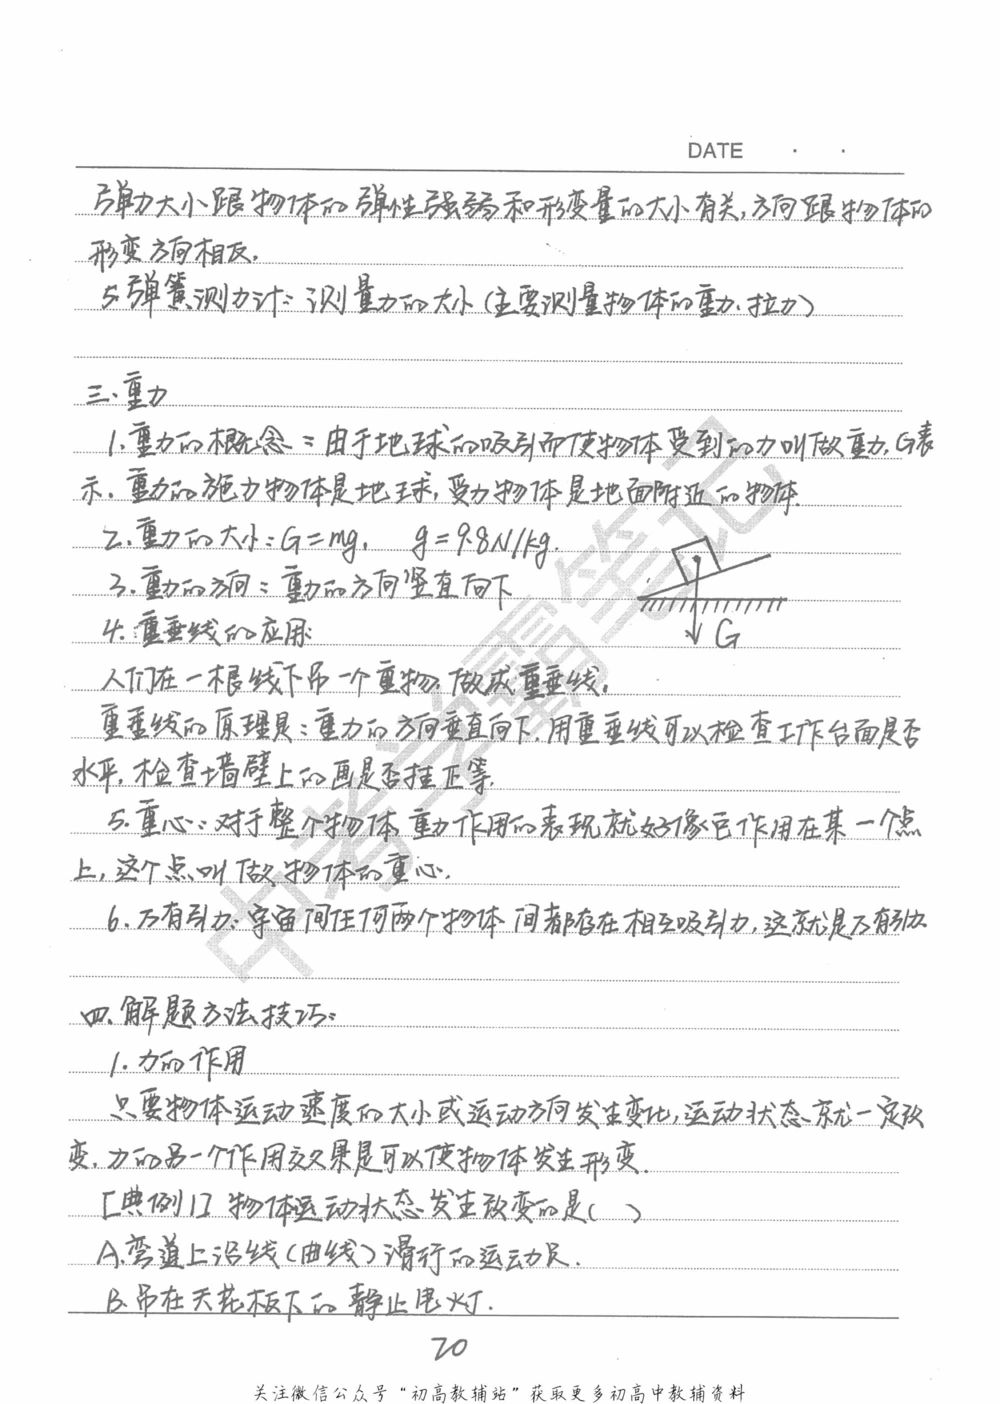 DATE · ·
弹力大小跟物体的弹性强弱和形变量的大小有关,方向跟物体的
形变方向相反.
5.弹簧测力计:测量力的大小(主要测量物体的重力、拉力)
三.重力
1.重力的概念:由于地球的吸引而使物体受到的力叫做重力.G表
示.重力的施力物体是地球,受力物体是地面附近的物体.
2.重力的大小:G=mg. g=9.8N/kg.
3.重力的方向:重力的方向竖直向下
G
4.重垂线的应用:
人们在一根线下吊一个重物,做成重垂线.
重垂线的原理是:重力的方向垂直向下.用重垂线可以检查工作台面是否
水平.检查墙壁上的画是否挂正等.
5.重心:对于整个物体,重力作用的表现就好像它作用在某一个点
上,这个点叫做物体的重心.
6.万有引力:宇宙间任何两个物体间都存在相互吸引力,这就是万有引力.
四.解题方法技巧:
1.力的作用
只要物体运动速度的大小或运动方向发生变化,运动状态就一定改
变.力的另一个作用效果是可以使物体发生形变.
[典例1]物体运动状态发生改变的是( )
A.弯道上沿线(曲线)滑行的运动员.
B.吊在天花板下的静止电灯.
20
关注微信公众号“初高教辅站”获取更多初高中教辅资料
中考学霸笔记